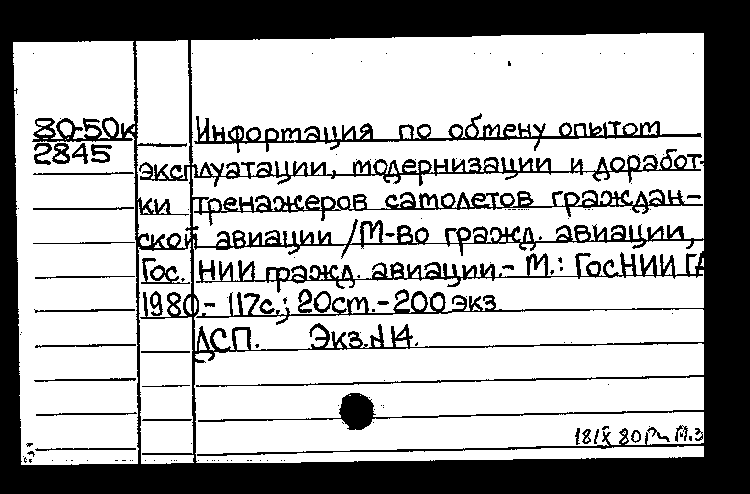 80-50к
2845
Информация по обмену опытом
эксплуатации, модернизации и доработ-
ки тренажеров самолетов граждан-
ской авиации /М-во гражд. авиации,
Гос. НИИ гражд. авиации.- М.: ГосНИИ ГА
1980.- 117с.; 20см.- 200 экз.
ДСП. Экз.N14.
18/IX 80